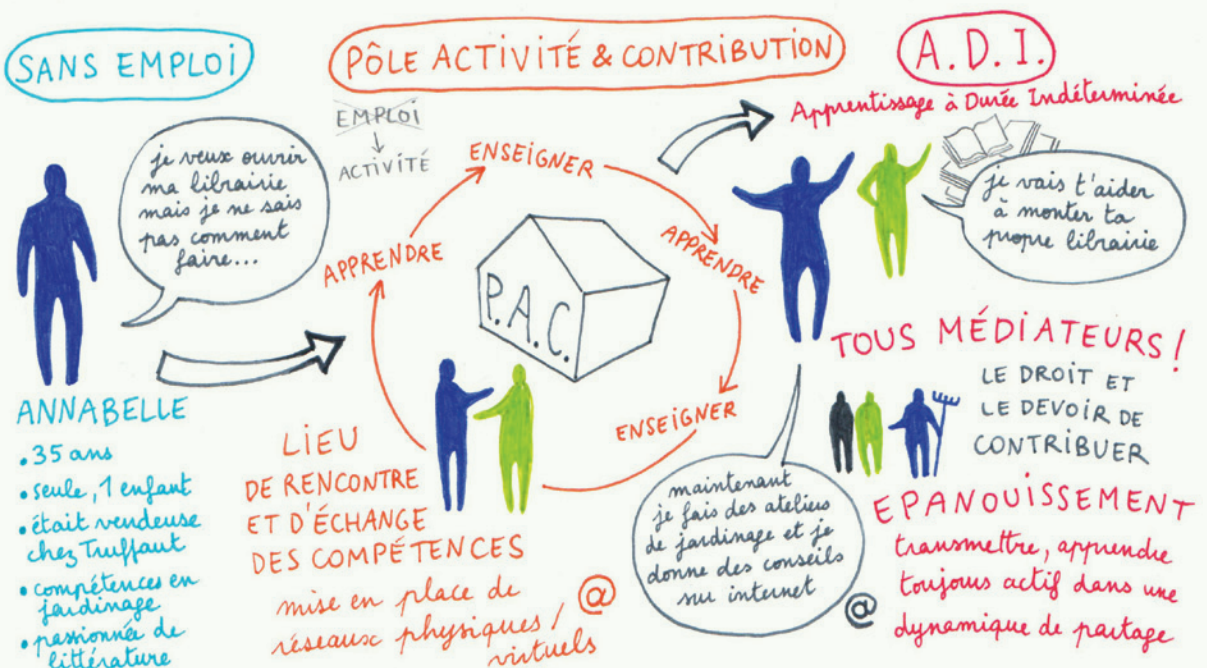 SANS EMPLOI
je veux ouvrir
ma librairie
mais je ne sais
pas comment
faire...
ANNABELLE
• 35 ans
• seule, 1 enfant
• était vendeuse
chez Truffaut
• compétences en
jardinage
• passionnée de
littérature
PÔLE ACTIVITÉ & CONTRIBUTION
EMPLOI
ACTIVITÉ
ENSEIGNER
APPRENDRE
APPRENDRE
P.A.C.
ENSEIGNER
LIEU
DE RENCONTRE
ET D'ÉCHANGE
DES COMPÉTENCES
mise en place de
réseaux physiques /
virtuels
@
A.D.I.
Apprentissage à Durée Indéterminée
je vais t'aider
à monter ta
propre librairie
maintenant
je fais des ateliers
de jardinage et je
donne des conseils
sur internet
@
TOUS MÉDIATEURS !
LE DROIT ET
LE DEVOIR DE
CONTRIBUER
EPANOUISSEMENT
transmettre, apprendre
toujours actif dans une
dynamique de partage